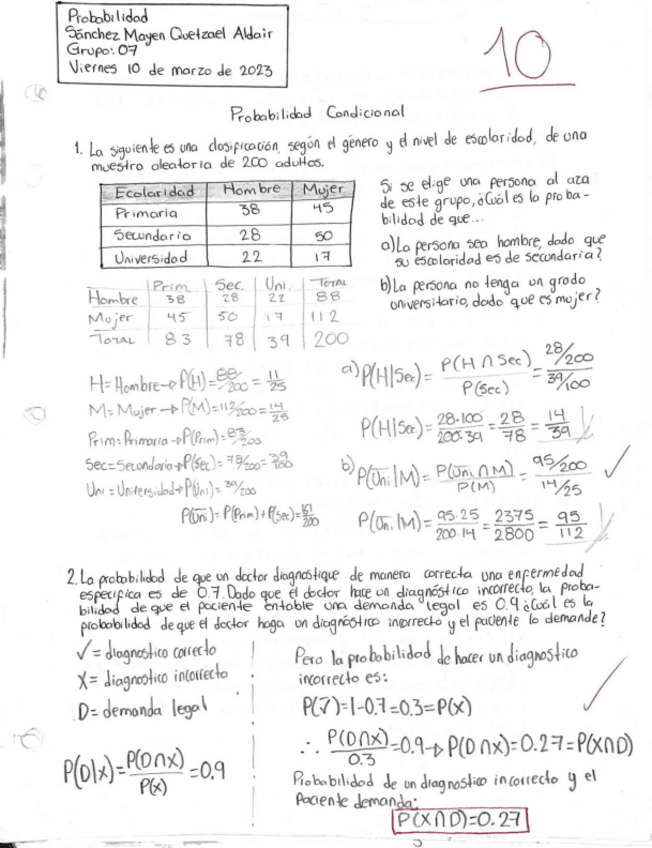 Probabilidad
Sánchez Mayen Quetzael Aldair
Grupo: 07
Viernes 10 de marzo de 2023
10
Probabilidad Condicional
1. La siguiente es una clasificación, según el género y el nivel de escolaridad, de una
muestra aleatoria de 200 adultos.
Ecolaridad Hombre Mujer
Primaria 38 45
Secundaria 28 50
Universidad 22 17
Si se elige una persona al aza
de este grupo, ¿Cuál es la proba-
bilidad de que...
a) La persona sea hombre, dado que
su escolaridad es de secundaria?
b) La persona no tenga un grado
universitario, dado que es mujer?
Prim. Sec. Uni. TOTAL
Hombre 38 28 22 88
Mujer 45 50 17 112
TOTAL 83 78 39 200
H = Hombre → P(H) = 88/200 = 11/25
M = Mujer → P(M) = 112/200 = 14/25
Prim = Primaria → P(Prim) = 83/200
Sec = Secundaria → P(Sec) = 78/200 = 39/100
Uni = Universidad → P(Uni) = 39/200
P(U̅n̅i̅) = P(Prim) + P(Sec) = 161/200
a) P(H|Sec) = P(H ∩ Sec)/P(Sec) = 28/200 / 39/100
P(H|Sec) = 28·100/200·39 = 28/78 = 14/39
b) P(U̅n̅i̅|M) = P(U̅n̅i̅ ∩ M)/P(M) = 95/200 / 14/25
P(U̅n̅i̅|M) = 95·25/200·14 = 2375/2800 = 95/112
2. La probabilidad de que un doctor diagnostique de manera correcta una enfermedad
especifica es de 0.7. Dado que el doctor hace un diagnóstico incorrecto, la proba-
bilidad de que el paciente entable una demanda legal es 0.9 ¿Cuál es la
probabilidad de que el doctor haga un diagnóstico incorrecto y el paciente lo demande?
✓ = diagnostico correcto
X = diagnostico incorrecto
D = demanda legal
P(D|X) = P(D∩X)/P(X) = 0.9
Pero la probabilidad de hacer un diagnostico
incorrecto es:
P(✓̅) = 1-0.7 = 0.3 = P(X)
∴ P(D∩X)/0.3 = 0.9 → P(D∩X) = 0.27 = P(X∩D)
Probabilidad de un diagnostico incorrecto y el
paciente demanda:
P(X∩D) = 0.27